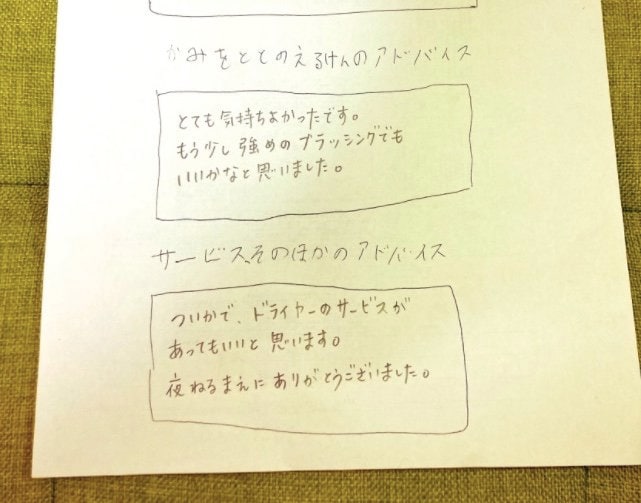 かみをととのえるけんのアドバイス
とても気持ちよかったです。
もう少し強めのブラッシングでも
いいかなと思いました。
サービス、そのほかのアドバイス
ついかで、ドライヤーのサービスが
あってもいいと思います。
夜ねるまえにありがとうございました。